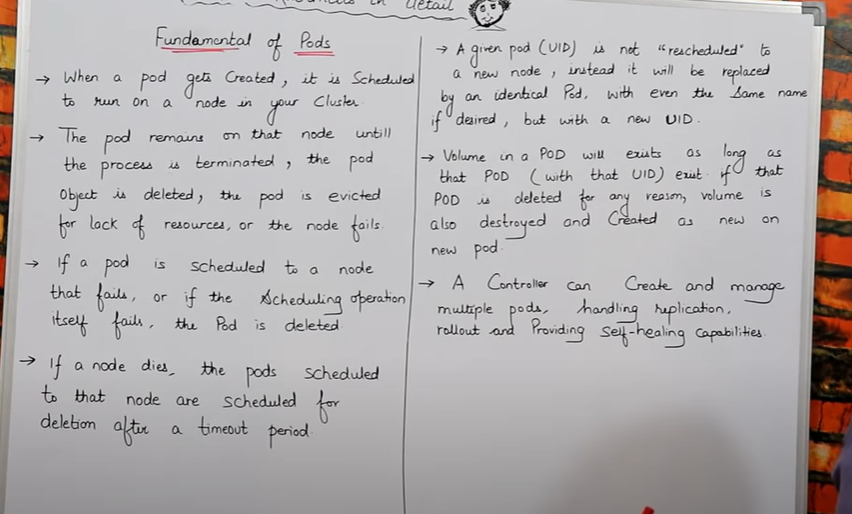 in Detail
Fundamental of Pods
→ When a pod gets Created, it is Scheduled
to run on a node in your Cluster.
→ The pod remains on that node untill
the process is terminated, the pod
Object is deleted, the pod is evicted
for lack of resources, or the node fails.
→ If a pod is scheduled to a node
that fails, or if the Scheduling operation
itself fails, the Pod is deleted.
→ If a node dies, the pods scheduled
to that node are scheduled for
deletion after a timeout period.
→ A given pod (UID) is not "rescheduled" to
a new node, instead it will be replaced
by an identical Pod, with even the Same name
if desired, but with a new UID.
→ Volume in a POD will exists as long as
that POD (with that UID) exist. if that
POD is deleted for any reason, volume is
also destroyed and Created as new on
new pod.
→ A Controller can Create and manage
multiple pods, handling replication,
rollout and Providing Self-healing Capabilities.